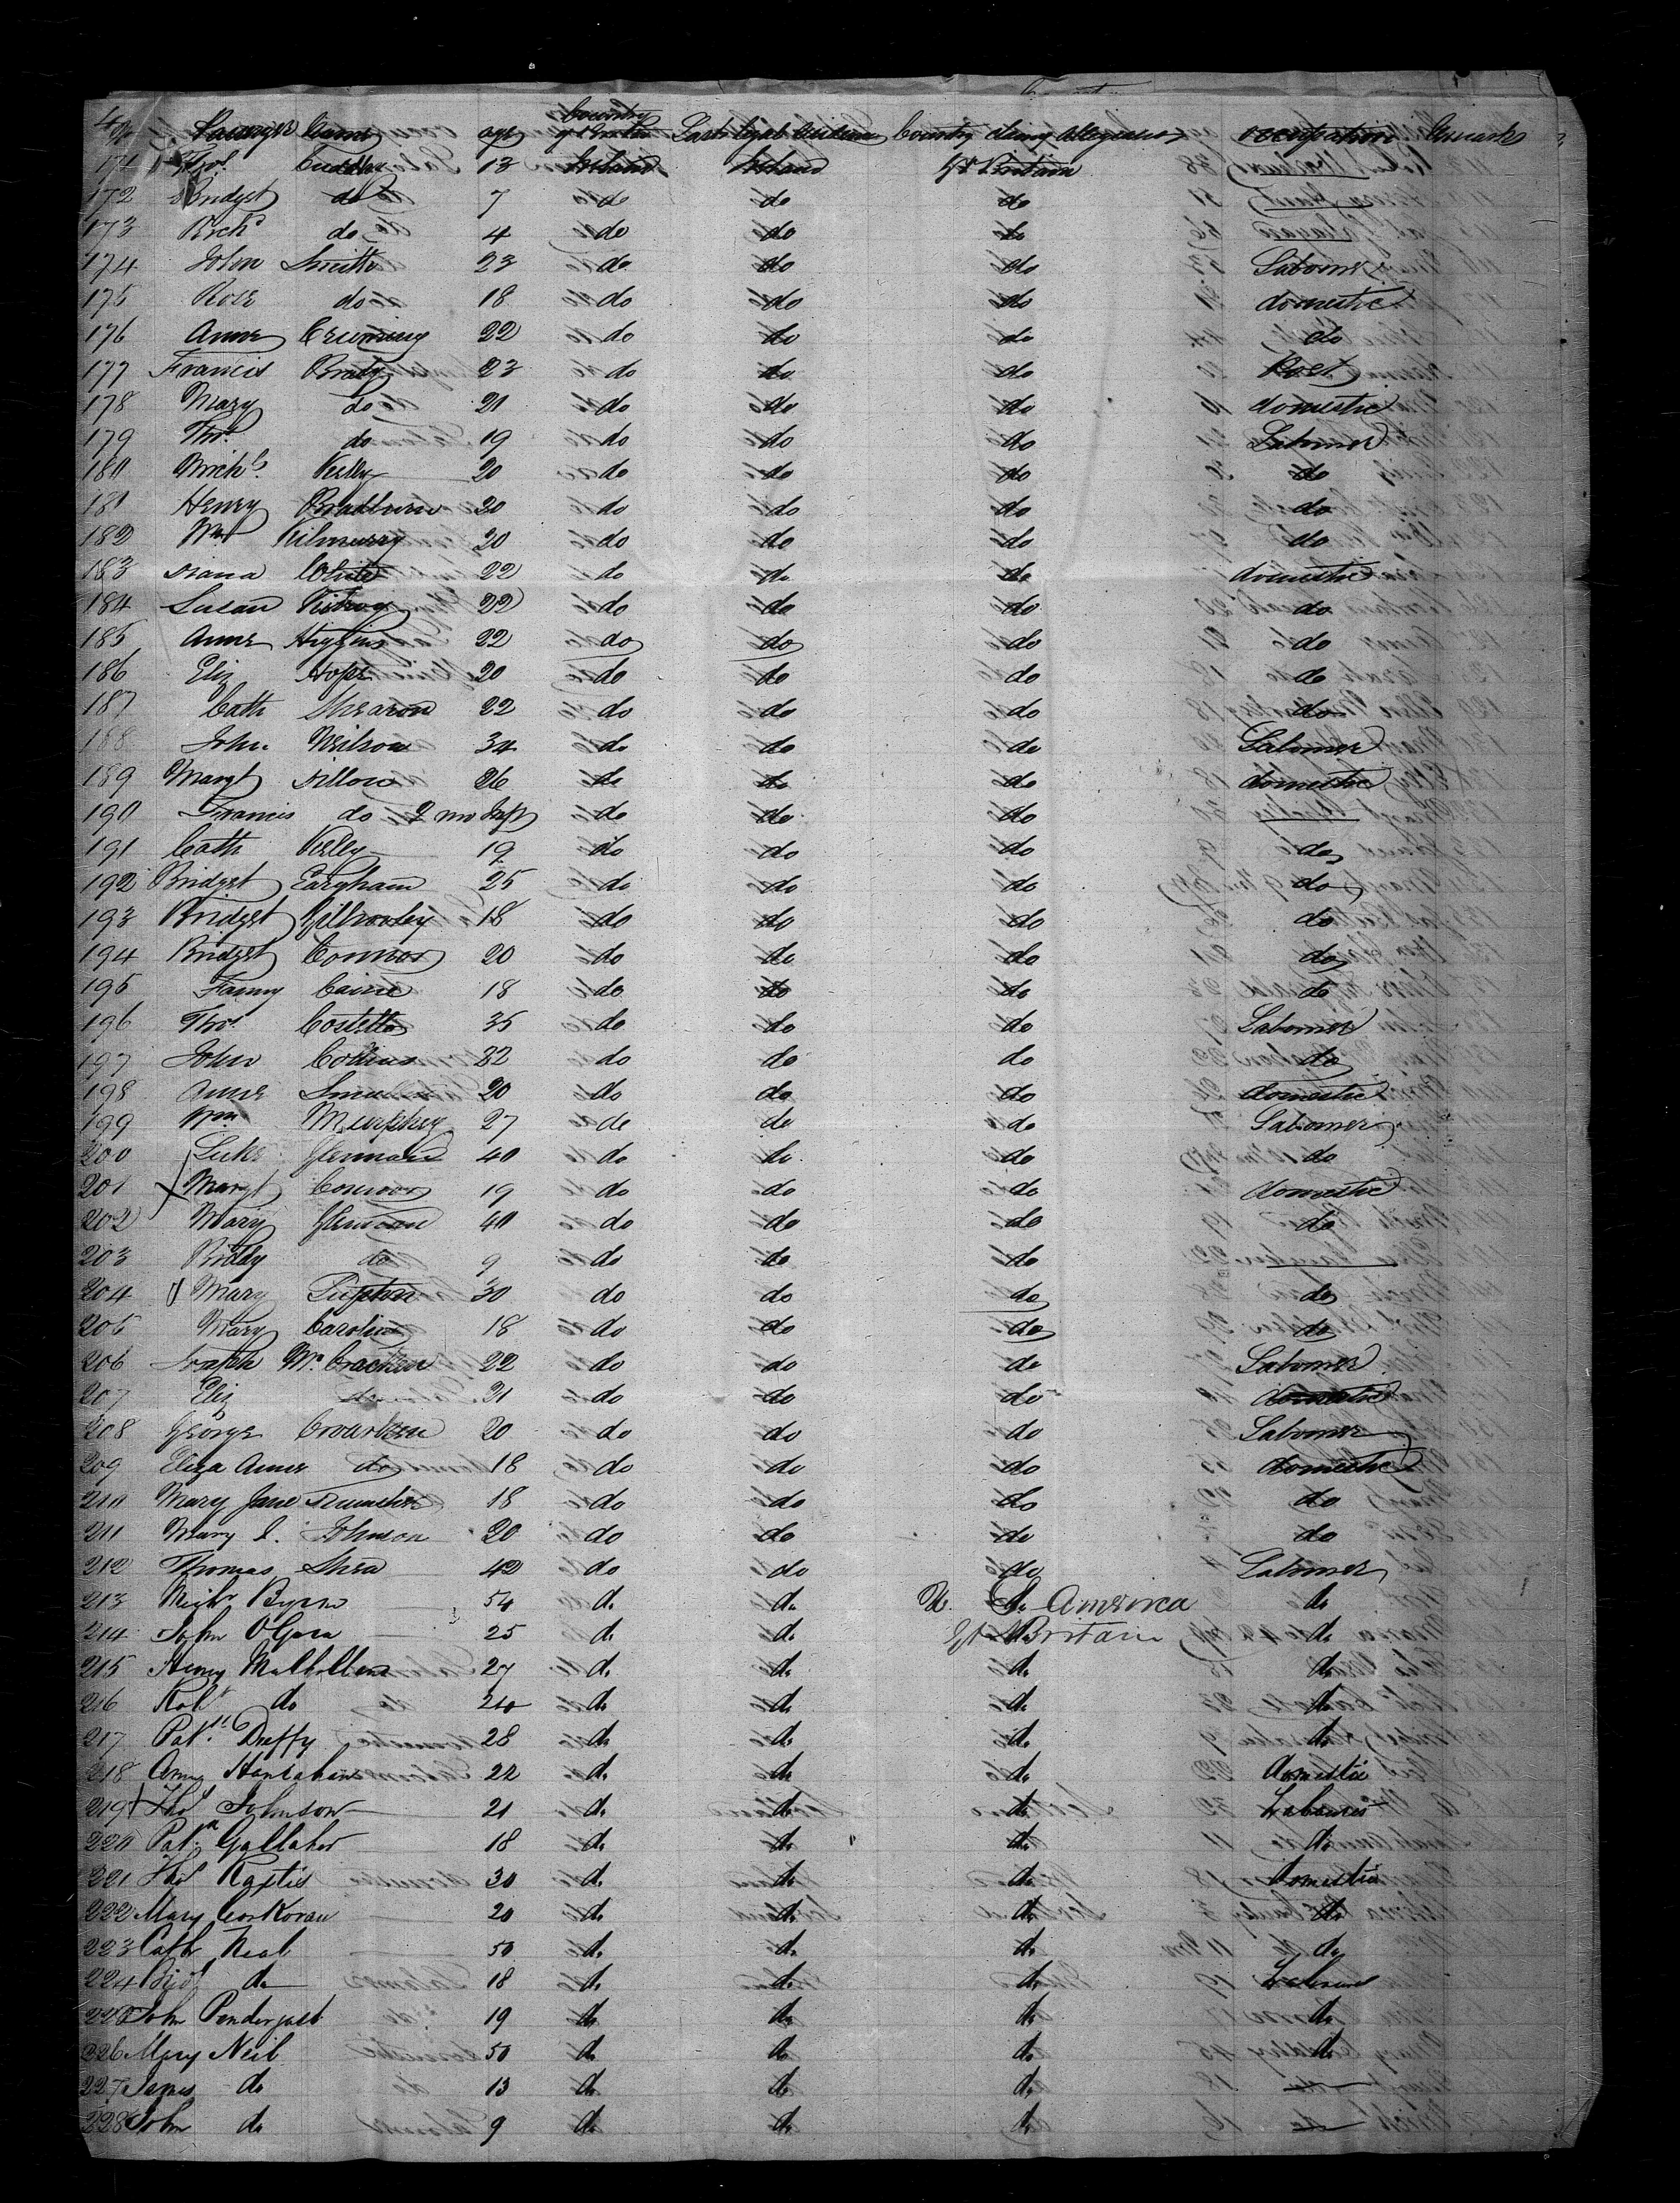 No Passenger Name age Country of Birth Last legal Residence Country claiming allegiance occupation Remarks
171 Thos. 13 Ireland Ireland Gt Britain
172 Bridget do 7 do do do
173 do 4 do do do
174 John Smith 23 do do do Labourer
175 Rose do 18 do do do domestic
176 Anne 22 do do do do
177 Francis Brady 23 do do do Poet
178 Mary do 21 do do do domestic
179 Thos. do 19 do do do Labourer
180 Mich. 20 do do do do
181 Henry Bradburn 20 do do do do
182 Wm Kilmurry 20 do do do do
183 Diana White 22 do do do domestic
184 Susan Kilroy 22 do do do do
185 Anne Higgins 22 do do do do
186 Eliz Hope 20 do do do do
187 Cath Shearon 22 do do do do
188 John Neilson 34 do do do Labourer
189 Margt Dillon 26 do do do domestic
190 Francis do 2 mo Inft do do do
191 Cath Kelly 19 do do do do
192 Bridget 25 do do do do
193 Bridget 18 do do do do
194 Bridget Connor 20 do do do do
195 Fanny 18 do do do do
196 Thos. Costello 35 do do do Labourer
197 John Collins 22 do do do do
198 Anne 20 do do do domestic
199 Wm Murphey 27 do do do Labourer
200 Luke Glennan 40 do do do do
201 Margt Connor 19 do do do domestic
202 Mary Glennan 40 do do do do
203 Biddy do 9 do do do
204 Mary 30 do do do do
205 Mary Carolin 18 do do do do
206 Joseph McCracken 22 do do do Labourer
207 Eliz do 21 do do do domestic
208 George 20 do do do Labourer
209 Eliza Anne do 18 do do do domestic
210 Mary Jane 18 do do do do
211 Mary Johnson 20 do do do do
212 Thomas Shea 42 do do do Labourer
213 Michl Byrne 54 do do U. S. America do
214 John OGara 25 do do Gt Britain do
215 Henry Mulhollan 27 do do do do
216 Robt do 20 do do do do
217 Patk. Duffy 28 do do do do
218 Ann Hanrahan 22 do do do domestic
219 Thos Johnson 21 do do do Labourer
220 Patk Gallaher 18 do do do do
221 Thos 30 do do do domestic
222 Mary Corkoran 20 do do do do
223 Cath Neal 50 do do do do
224 Bridt do 18 do do do Labourer
225 John Pendergast 19 do do do do
226 Mary Neil 50 do do do do
227 James do 13 do do do
228 John do 9 do do do